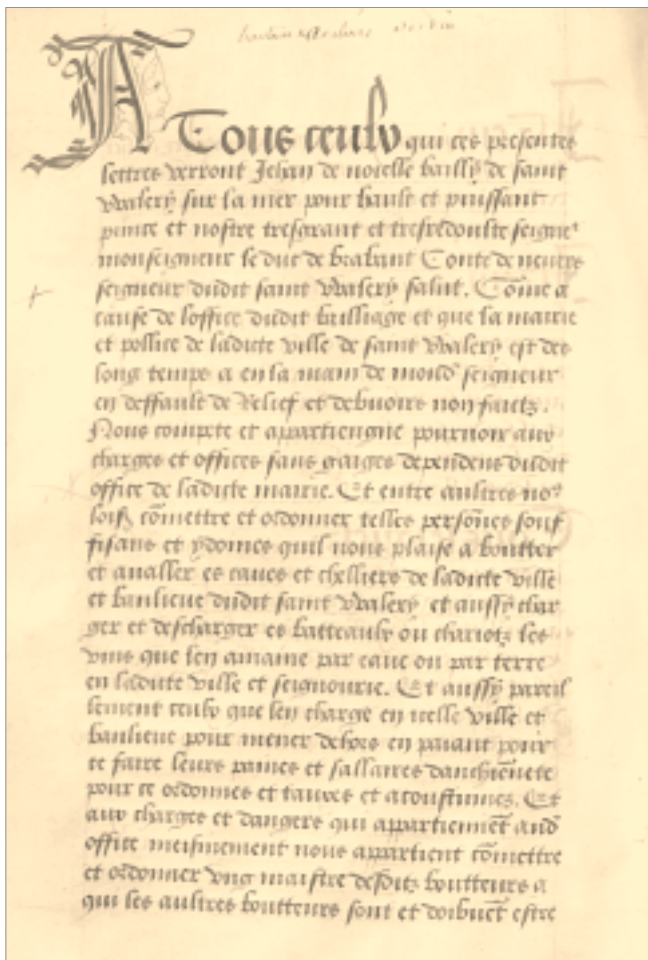 A Tous ceulx qui ces presentes
lettres verront Jehan de noielle bailly de saint
Walery sur la mer pour hault et puissant
prince et nostre tresgrant et tresredoubte seigne'
monseigneur le duc de brabant Conte de nevers
seigneur dudit saint Walery salut. Cōme a
cause de loffice dudit bailliage et que la mairie
et pollice de ladicte ville de saint Walery est des
long temps a en la main de mond' seigneur
en deffault de relief et debuoirs non faictz.
Nous compte et appartiengne pourueoir aux
charges et offices sans gaiges dependens dudit
office de ladicte mairie. Et entre aultres no9
loist cōmettre et ordonner telles persōnes souf
fisans et ydoines quil nous plaise a boutter
et aualler es caues et chelliers de ladicte ville
et banlieue dudit saint Walery et aussy char
ger et descharger es batteaulx ou chariotz les
vins que len amaine par eaue ou par terre
en ladicte ville et seignourie. Et aussy pareil
lement ceulx que len charge en icelle ville et
banlieue pour mener dehors en paiant pour
ce faire leurs paines et sallaires danchiēnete
pour ce ordonnes et tauxes et acoustumez. Et
aux charges et dangers qui appartiennēt aud'
office meismement nous appartient cōmettre
et ordonner vng maistre desditz boutteurs a
qui les aultres boutteurs sont et doibuēt estre